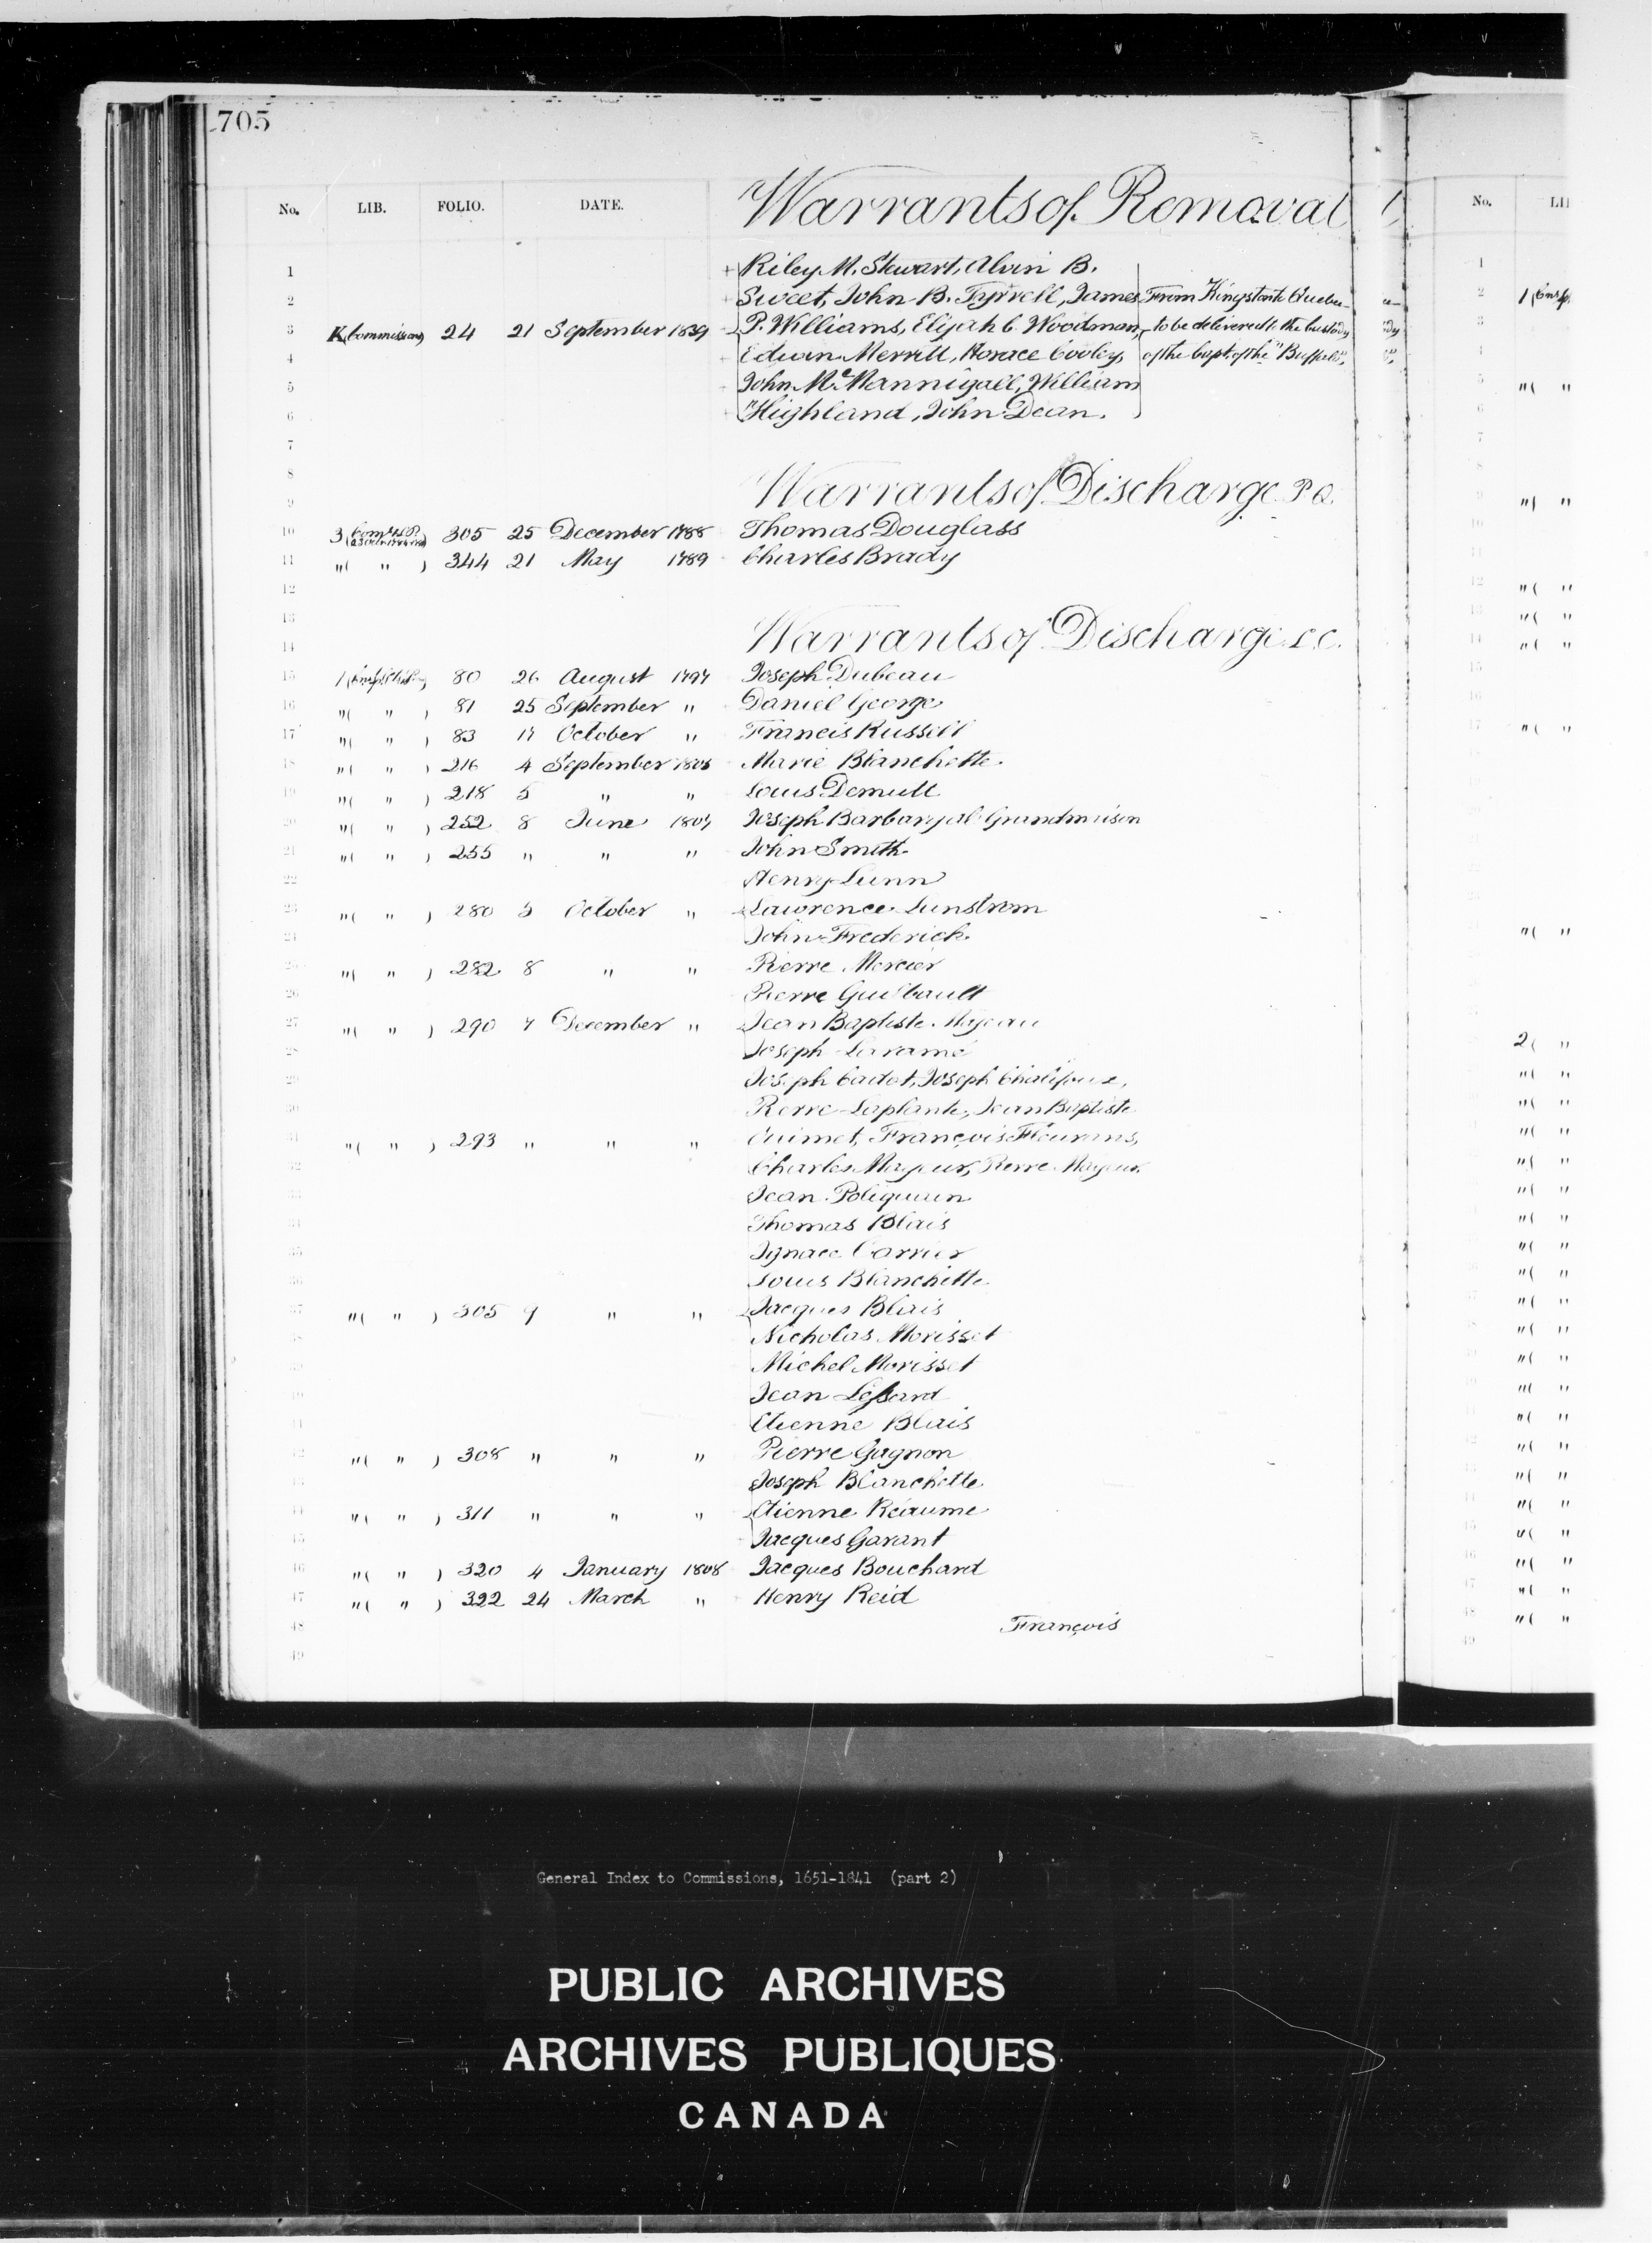 705
No. LIB. FOLIO. DATE. Warrants of Removal
1 Riley M. Stewart, Alvin B.
2 Sweet, John B. Tyrrell, James From Kingston to Quebec
3 K(Commissions) 24 21 September 1839 P. Williams, Elijah C. Woodman, to be delivered to the custody
4 Edwin Merritt, Horace Cooley, of the Capt. of the "Buffalo",
5 John McMannigall, William
6 Highland, John Dean.
7
8 Warrants of Discharge P.Q.
9
10 3 305 25 December 1788 Thomas Douglass
11 "( " ) 344 21 May 1789 Charles Brady
12
13 Warrants of Discharge L.C.
14
15 1 80 26 August 1797 Joseph Dubeau
16 "( " ) 81 25 September " Daniel George
17 "( " ) 83 17 October " Francis Russell
18 "( " ) 216 4 September Marie Blanchette
19 "( " ) 218 5 " " Louis Demult
20 "( " ) 252 8 June 1807 Joseph Grandmaison
21 "( " ) 255 " " " John Smith
22 Henry Lunn
23 "( " ) 280 5 October " Lawrence Lunstrom
24 John Frederick
25 "( " ) 282 8 " " Pierre Mercier
26 Pierre Guilbault
27 "( " ) 290 7 December " Jean Baptiste
28 Joseph Laramé
29 Joseph Cadot, Joseph Chalifoux,
30 Pierre Laplante, Jean Baptiste
31 "( " ) 293 " " " Ouimet, François
32 Charles Mayeux, Pierre Mayeux
33 Jean Poliquin
34 Thomas Blais
35 Ignace Carrier
36 Louis Blanchette
37 "( " ) 305 9 " " Jacques Blais
38 Nicholas Morisset
39 Michel Morisset
40 Jean Lessard
41 Etienne Blais
42 "( " ) 308 " " " Pierre Gagnon
43 Joseph Blanchette
44 "( " ) 311 " " " Etienne Réaume
45 Jacques Garant
46 "( " ) 320 4 January 1808 Jacques Bouchard
47 "( " ) 322 24 March " Henry Reid
48 François
49
General Index to Commissions, 1651-1841 (part 2)
PUBLIC ARCHIVES
ARCHIVES PUBLIQUES
CANADA